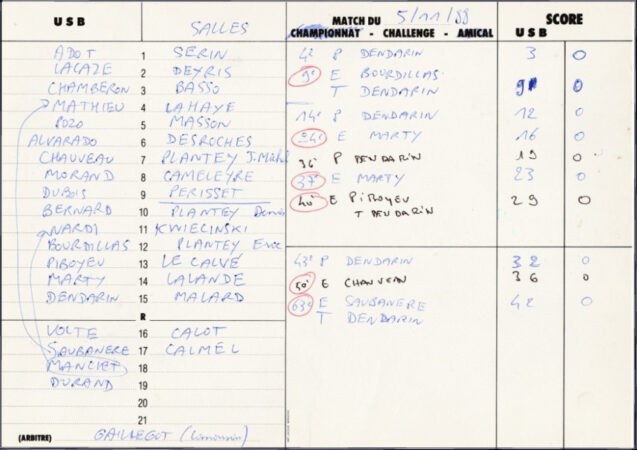 USB SALLES
ADOT 1 SERIN
LACAZE 2 DEYRIS
CHAMBERON 3 BASSO
MATHIEU 4 LAHAYE
POZO 5 MASSON
ALVARADO 6 DESROCHES
CHAUVEAU 7 PLANTEY J.
MORAND 8 CAMELEYRE
DUBOIS 9 PERISSET
BERNARD 10 PLANTEY
NARDI 11 KWIECINSKI
BOURDILLAS 12 PLANTEY Eric
PIBOYEU 13 LE CALVÉ
MARTY 14 LALANDE
DENDARIN 15 MALARD
R
VOLTE 16 CALOT
SAUBANERE 17 CALMEL
MANCIET 18
DURAND 19
20
21
(ARBITRE) GAILLEGOT (Limousin)
MATCH DU 5/11/88
CHAMPIONNAT - CHALLENGE - AMICAL
SCORE
USB
4' P DENDARIN 3 0
9' E BOURDILLAS
T DENDARIN 9 0
14' P DENDARIN 12 0
24' E MARTY 16 0
36' P DENDARIN 19 0
37' E MARTY 23 0
40' E PIBOYEU 29 0
T DENDARIN
43' P DENDARIN 32 0
50' E CHAUVEAU 36 0
63' E SAUBANERE 42 0
T DENDARIN